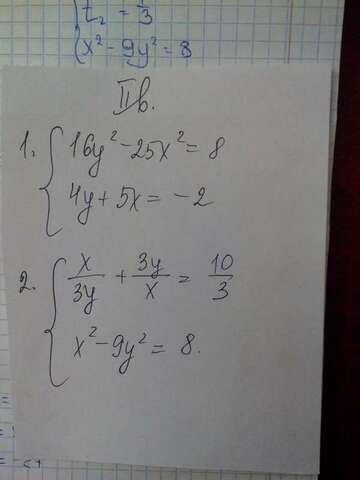 t₂ = 1/3
x² - 9y² = 8
IIв.
1. { 16y² - 25x² = 8
4y + 5x = -2
2. { x/3y + 3y/x = 10/3
x² - 9y² = 8.